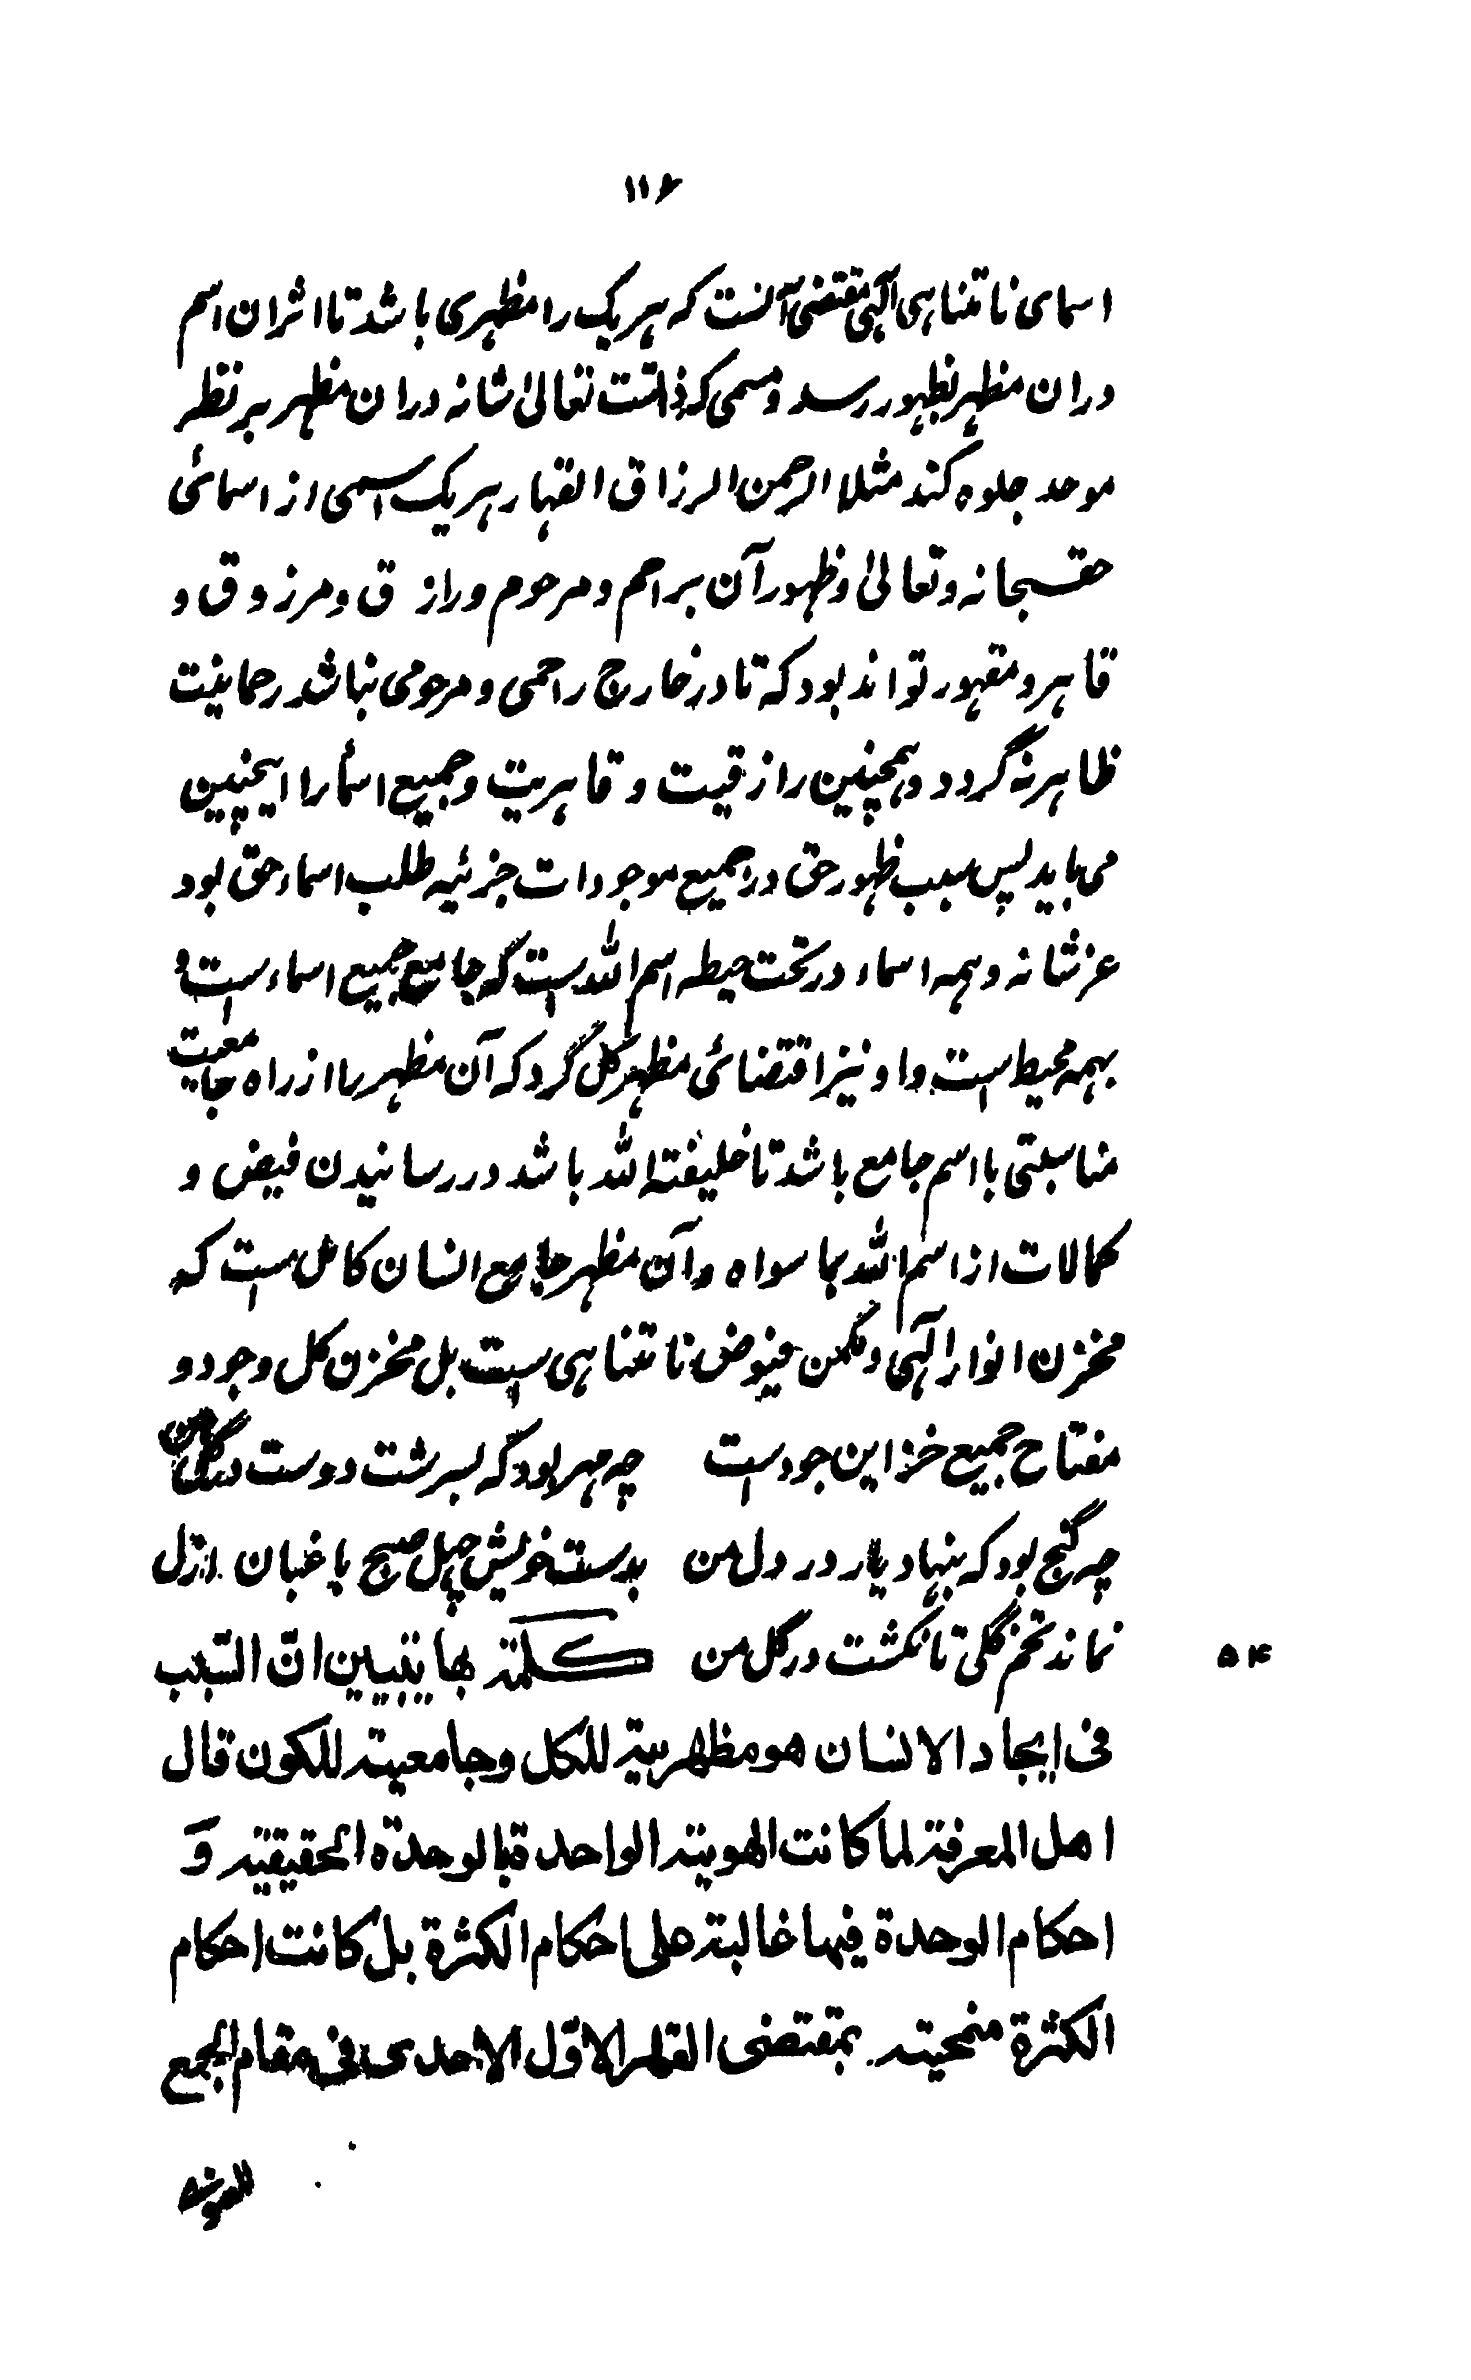 ۱۱۶
اسمای نا تنناہی آلہی مقتضی آنست کہ ہریک را مظہری باشد تا اثران اسم
دران مظہر بظہور رسد و مسمی کہ ذاتست تعالیٰ شانہ دران مظہر بر نظر
موحد جلوہ کند مثلا الرحمن الرزاق القہار ہریک اسمی از اسمائی
حقسبحانہ وتعالیٰ وظہور آن براحم و مرحوم و رازق و مرزوق و
قاہر و مقہور تواند بود کہ تا در خارج راحمی و مرحومی نباشد رحمانیت
ظاہر نہ گردد و ہمچنین رازقیت و قاہریت و جمیع اسمأ را اینچنین
می باید پس سبب ظہور حق در جمیع موجودات جزئیہ طلب اسماء حق بود
عزشانہ و ہمہ اسماء در تحت حیطہ اسم اللہ است کہ جامع جمیع اسماء است و
بہمہ محیط است و او نیز اقتضائی مظہر کل گرد کہ آن مظہر را از راہ جامعیت
مناسبتی با اسم جامع باشد تا خلیفتہ اللہ باشد در رسانیدن فیض و
کمالات از اسم اللہ بما سواہ و آن مظہر جامع انسان کامل ست کہ
مخزن انوار آلہی و مکمن فیوض نا تنناہی ست بل مخزن کل وجود و
مفتاح جمیع خزاین جود است چہ مہر بود کہ بسرشت دوست در گل من
چہ گنج بود کہ بنہاد یار در دل من بدست خویش چہل صبح باغبان ازل
نماند تخم گلی تا نکشت در گل من کلمتہ بہا یتبین انّ السّبب
۵۴
فی ایجاد الانسان هو مظهریتہ للکل وجامعیتہ للکون قال
اهل المعرفة لما کانت الهویتہ الواحدة بالوحدة الحقیقیتہ وَ
احکام الوحدة فیها غالبتہ علی احکام الکثرة بل کانت احکام
الکثرة منمحیتہ بمقتضی القهر الاوّل الاحدی فی مقام الجمع